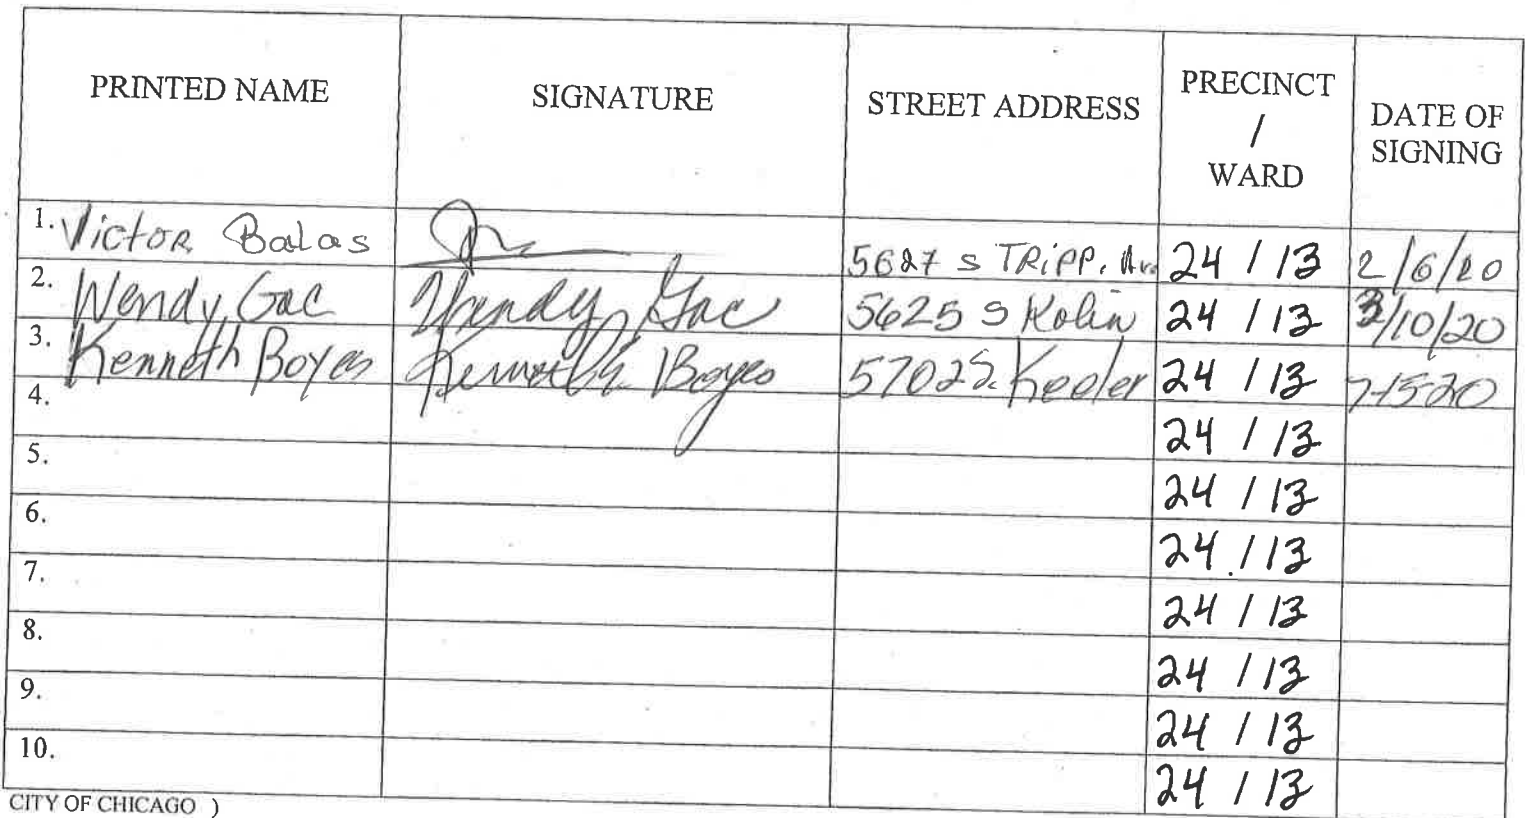 PRINTED NAME SIGNATURE STREET ADDRESS PRECINCT / WARD DATE OF SIGNING
1. Victor Balas 5627 S TRiPP. Av. 24 / 13 2/6/20
2. Wendy Gac Wendy Gac 5625 S Kolin 24 / 13 3/10/20
3. Kenneth Boyes Kenneth Boyes 5702 S. Keeler 24 / 13 7-15-20
4. 24 / 13
5. 24 / 13
6. 24 / 13
7. 24 / 13
8. 24 / 13
9. 24 / 13
10. 24 / 13
CITY OF CHICAGO )